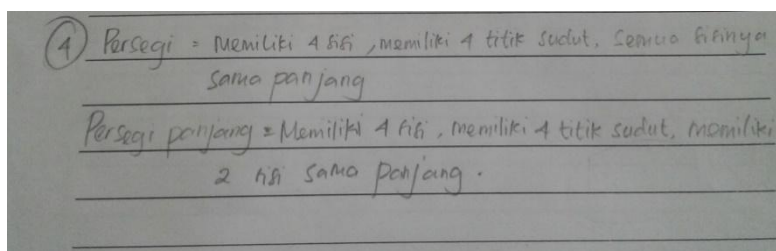 ④ Persegi = Memiliki 4 sisi, memiliki 4 titik sudut, semua sisinya
sama panjang
Persegi panjang = Memiliki 4 sisi, memiliki 4 titik sudut, memiliki
2 sisi sama panjang.